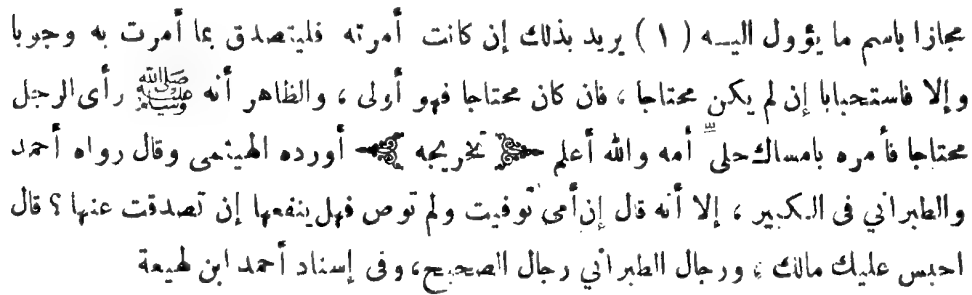 مجازا باسم ما يؤول اليـه ( ١ ) يريد بذلك إن كانت أمرته فليتصدق بما أمرت به وجوبا
وإلا فاستحبابا إن لم يكن محتاجا ، فان كان محتاجا فهو أولى ، والظاهر أنه ﷺ رأى الرجل
محتاجا فأمره بامساك حلىّ أمه والله أعلم ﴿ تخريجه ﴾ أورده الهيثمى وقال رواه أحمد
والطبرانى فى الكبير ، إلا أنه قال إن أمى توفيت ولم توص فهل ينفعها إن تصدقت عنها ؟ قال
احبس عليك مالك ، ورجال الطبرانى رجال الصحيح، وفى إسناد أحمد ابن لهيعة